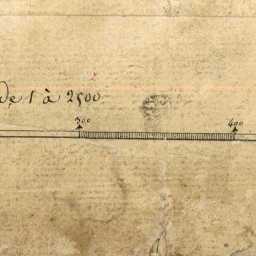 de 1 à 2500
300 400